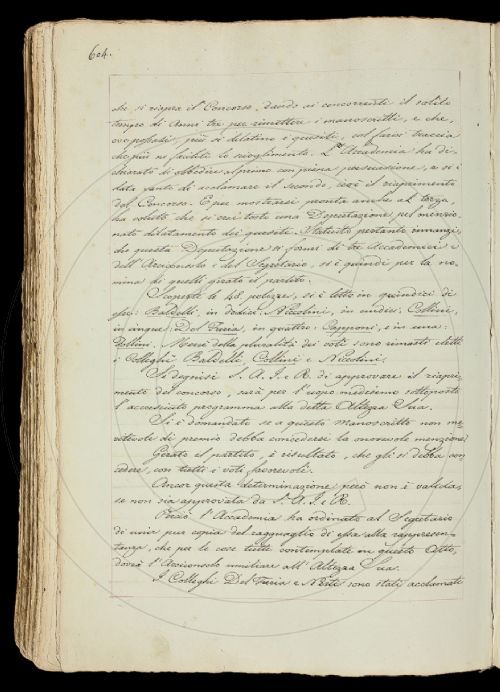 604.
che si riapra il Concorso, dando ai concorrenti il solito
tempo di anni tre per rimettere i manoscritti, e che,
ove possasi, più si dilatino i quesiti, col farsi traccia
che più ne faciliti lo scioglimento. L'Accademia ha di-
chiarato di obbedire al primo con piena persuasione, e si è
data vanto di reclamare il secondo, cioè il riaprimento
del Concorso. E per mostrarsi pronta anche al terzo,
ha voluto che si crei tosto una Deputazione pel menzio-
nato dilatamento dei quesiti. Statuito pertanto innanzi,
che questa Deputazione si formi di tre Accademici e
dell'Arciconsolo e del Segretario, si è quindi per la no-
mina di quelli girato il partito.
Scoperte le polizze, si è letto in quindici di
esse: Baldelli, in dodici: Niccolini, in undici: Collini,
in cinque: Del Furia, in quattro: Zannoni, e in una:
Bellini. Mercè della pluralità dei voti sono rimasti eletti
i Colleghi Baldelli, Collini e Niccolini.
Se degnisi S. A. I. e R. di approvare il riapri-
mento del concorso, sarà per l'uopo medesimo sottoposto
l'accresciuto programma alla detta Altezza Sua.
Si è domandato se a questo manoscritto non me-
ritevole di premio debba concedersi la onorevole menzione.
Girato il partito, è risultato, che gli si debba con
cedere, con tutti i voti favorevoli.
Ancor questa determinazione però non è valida,
se non sia approvata da S. A. I. e R.
Perciò l'Accademia ha ordinato al Segretario
di unir per copia del ragguaglio di essa alla rappresen-
tanza, che per le cose tutte contemplate in questo Atto,
dovrà l'Arciconsolo umiliare all'Altezza Sua.
I Colleghi Del Furia e Nesti sono stati acclamati